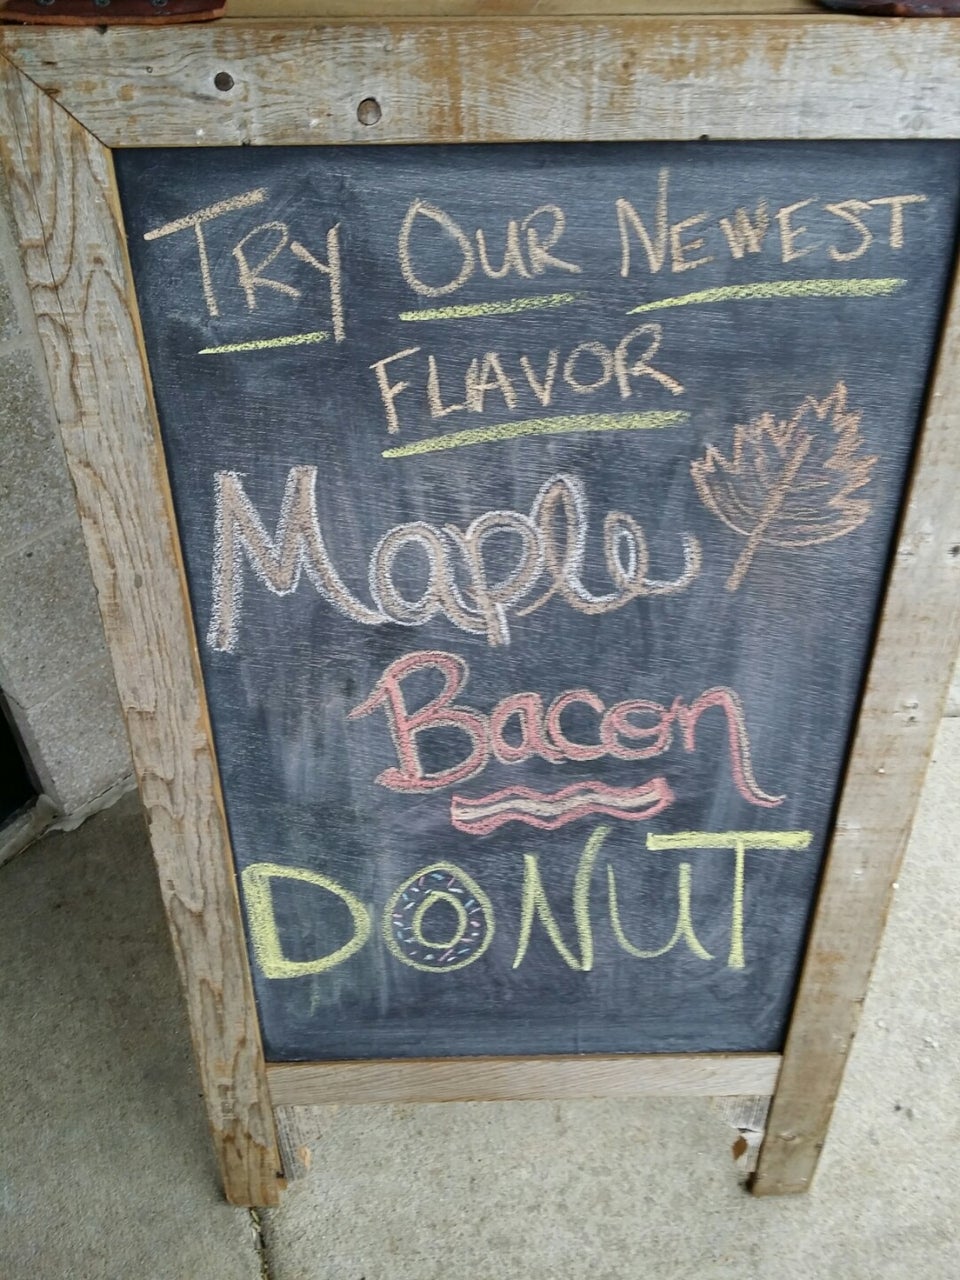 TRY OUR NEWEST
FLAVOR
Maple
Bacon
DONUT